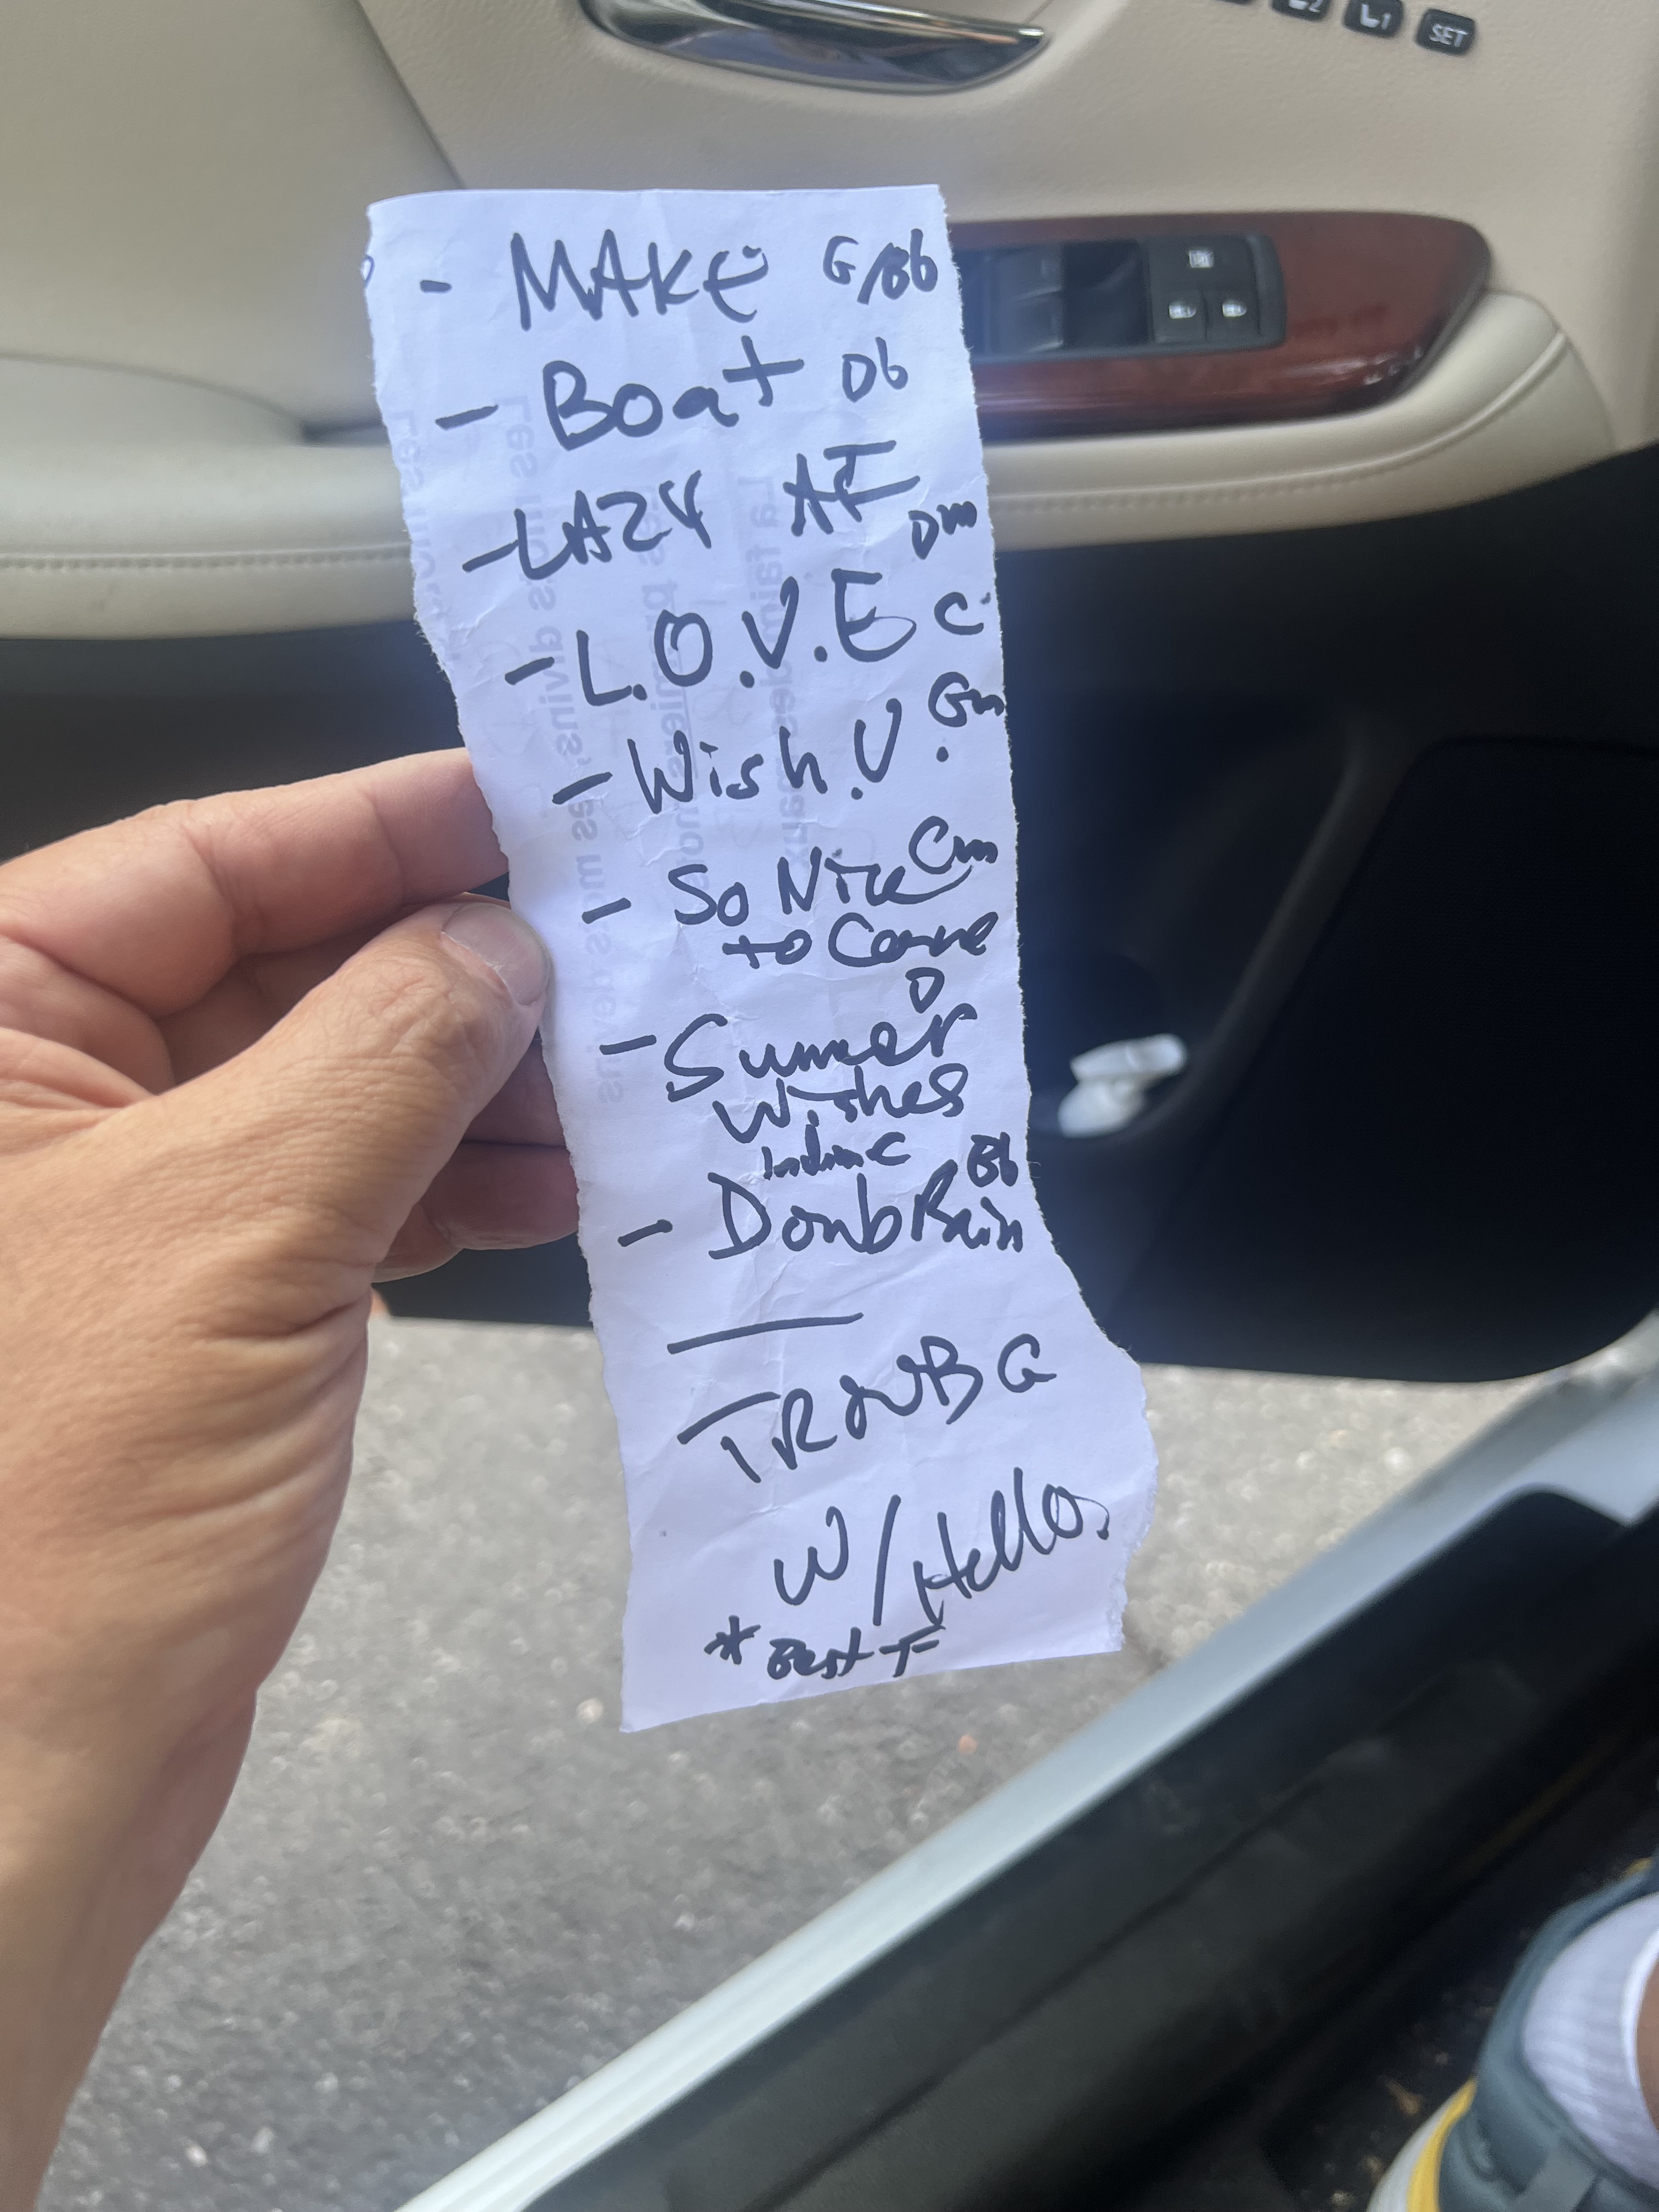 SET
- MAKE G/Bb
- Boat Db
- LAZY AF Dm
- L.O.V.E C
- Wish. U. Gm
- So Nice Cm
to Come
D
- Summer
Wishes
- Doub Rain Bb
TROUB G
W/Hello
* Best F